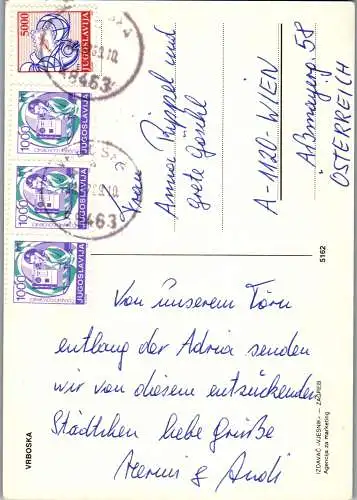 5000
JUGOSLAVIJA
1000
JUGOSLAVIJA
1000
JUGOSLAVIJA
1000
JUGOSLAVIJA
Frau
Anna Trippel und
Grete Göschl
A-1120-WIEN
Aßmayerg. 58
ÖSTERREICH
Von unserem Törn
entlang der Adria senden
wir von diesem entzückenden
Städtchen liebe Grüße
Hermi & Andi
VRBOSKA
5162
IZDAVAČ »VJESNIK« — ZAGREB
Agencija za marketing